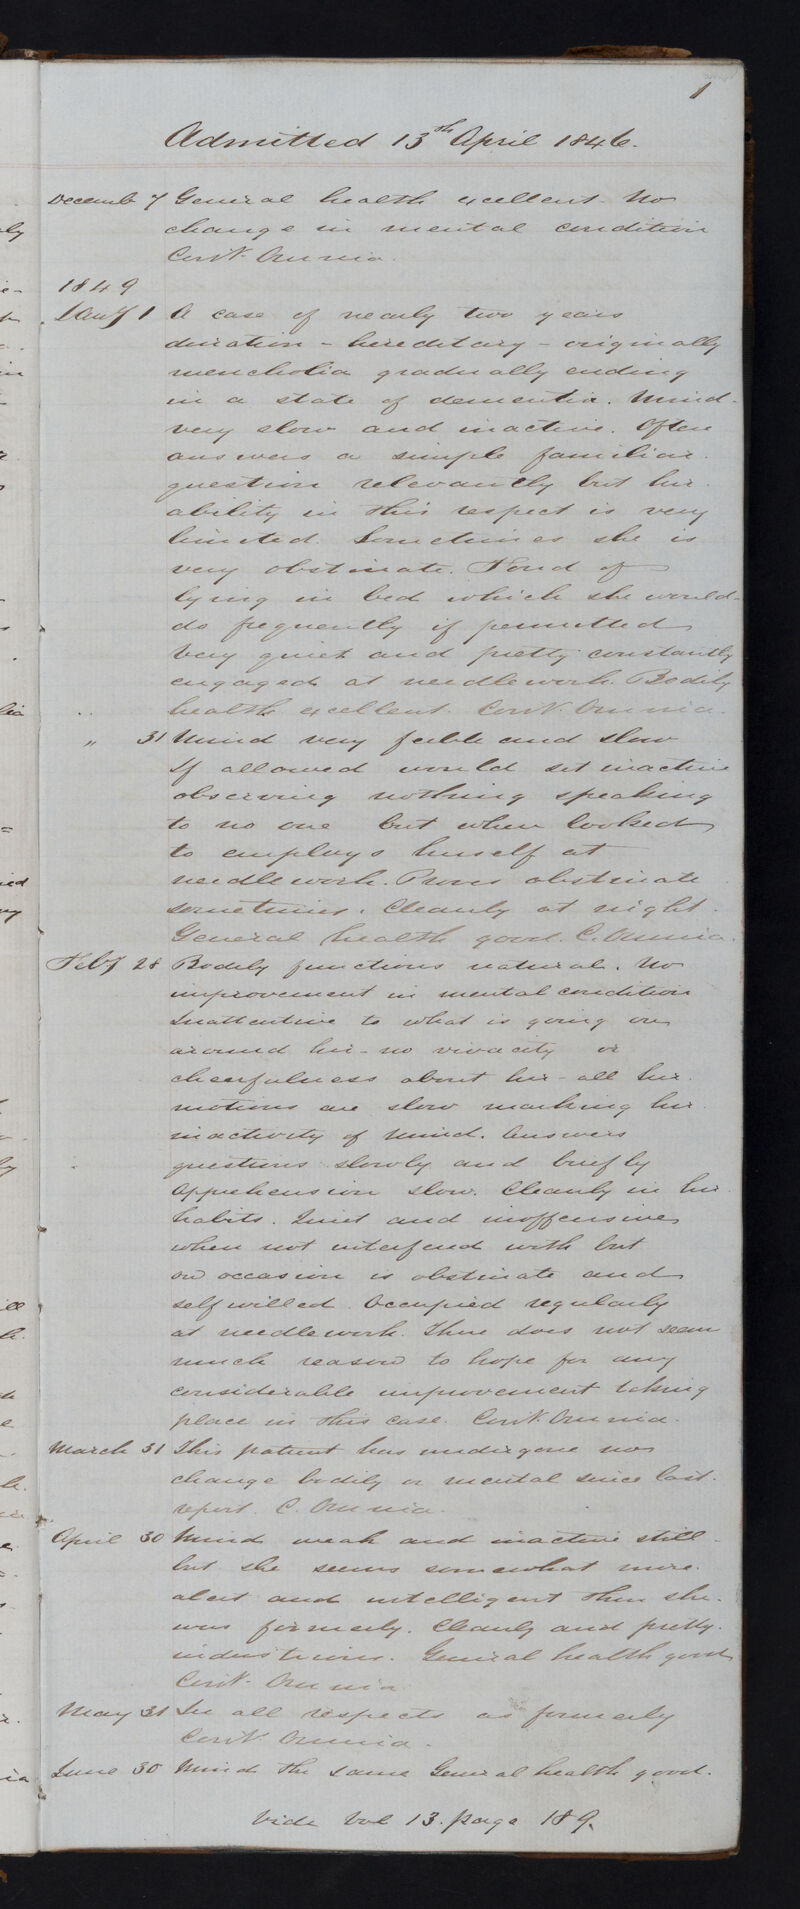 1
Admitted 13th April 1846.
Decemb 7 General health excellent. No
change in mental condition
Cont. Omnia.
1849
Jany 1 A case of nearly two years
duration - hereditary - originally
mencholia gradually ending
in a state of dementia. Mind
very slow and inactive. Often
answers a simple familiar
question relevantly but her
ability in this respect is very
limited. Sometimes she is
very obstinate. Fond of
lying in bed which she would
do frequently if permitted
Very quiet and pretty constantly
engaged at needlework. Bodily
health excellent. Cont. Omnia.
" 31 Mind very feeble and slow
If allowed would sit inactive
observing nothing speaking
to no one but when looked
to employs herself at
needlework. Proves obstinate
sometimes. Cleanly at night.
General health good. C. Omnia.
Feby 28 Bodily functions natural. No
improvement in mental condition
Inattentive to what is going on
around her - no vivacity or
cheerfulness about her - all her
motions are slow marking her
inactivity of mind. Answers
questions slowly and briefly
Apprehension slow. Cleanly in her
habits. Quiet and inoffensive
when not interfered with but
on occasion is obstinate and
self willed. Occupied regularly
at needlework. There does not seem
much reason to hope for any
considerable improvement taking
place in this case. Cont. Omnia.
March 31 This patient has undergone no
change bodily or mental since last
report. C. Omnia.
April 30 Mind weak and inactive still
but she seems somewhat more
alert and intelligent than she
was formerly. Cleanly and pretty
industrious. General health good
Cont. Omnia
May 31 In all respects as formerly
Cont. Omnia.
June 30 Mind the same General health good.
Vide Vol 13. page 189.